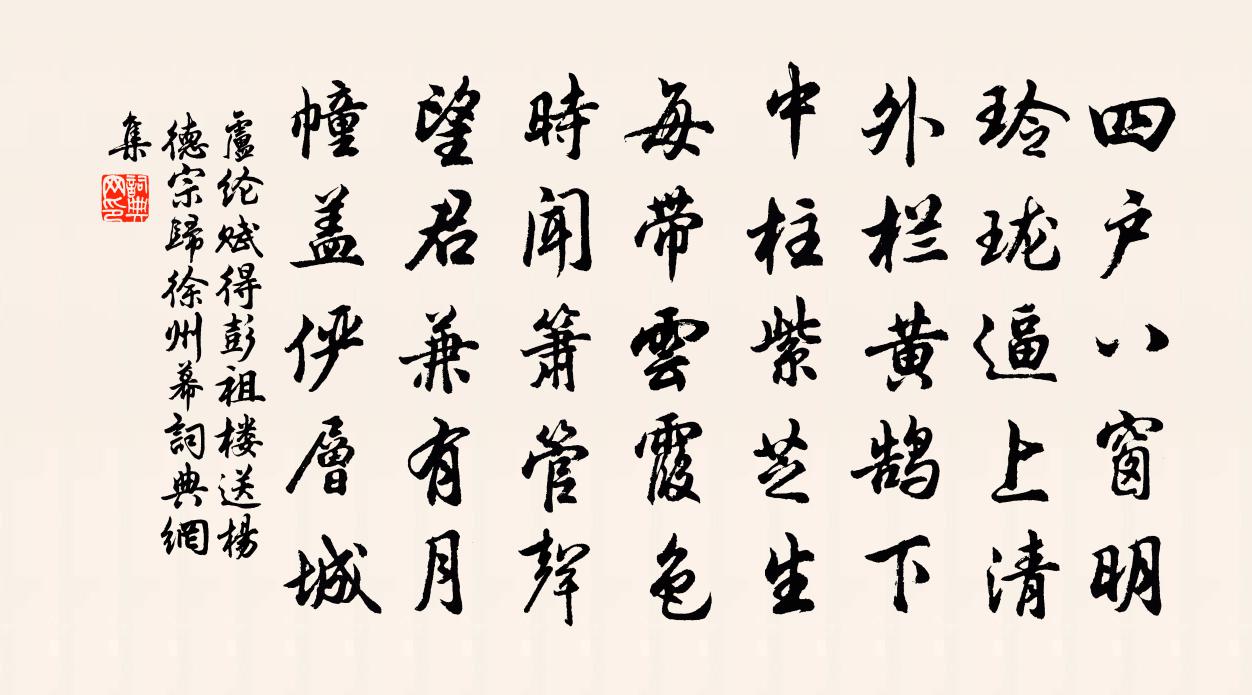 四户八窗明
玲珑逼上清
外栏黄鹄下
中柱紫芝生
每带雲霞色
時闻箫管聲
望君兼有月
幢盖俨層城
盧纶赋得彭祖楼送楊
德宗歸徐州幕詞典網
集
詞典
网印